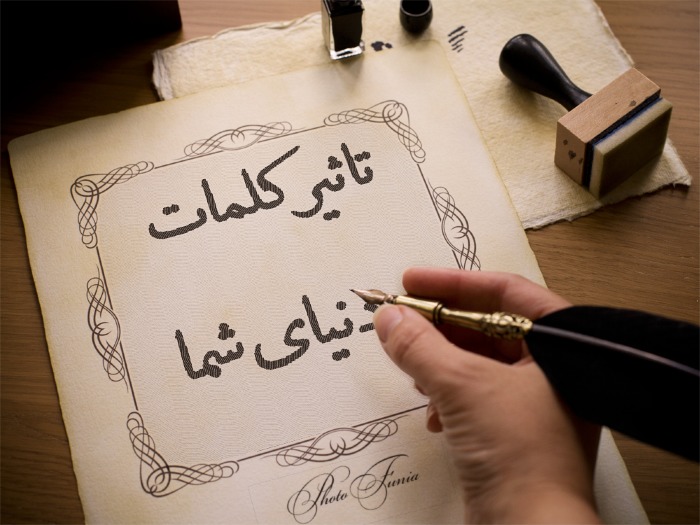 تاثیر کلمات
دنیای شما
Photo Funia